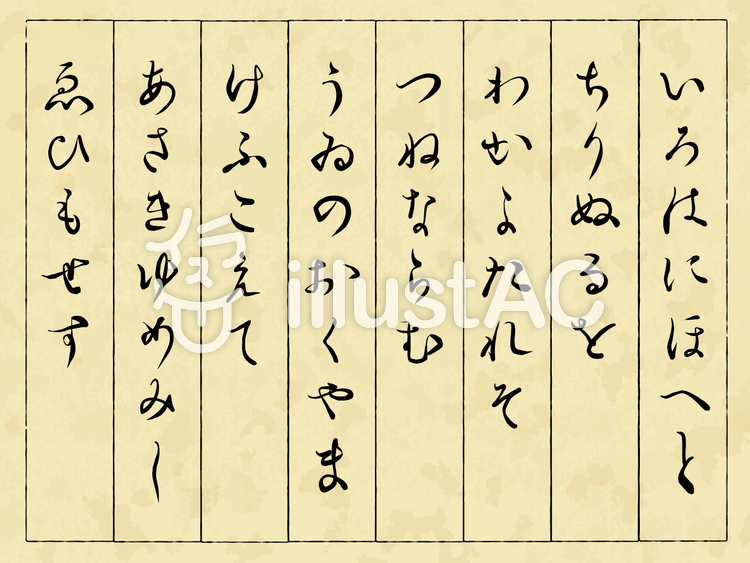 いろはにほへと
ちりぬるを
わかよたれそ
つねならむ
うゐのおくやま
けふこえて
あさきゆめみし
ゑひもせす
illustAC